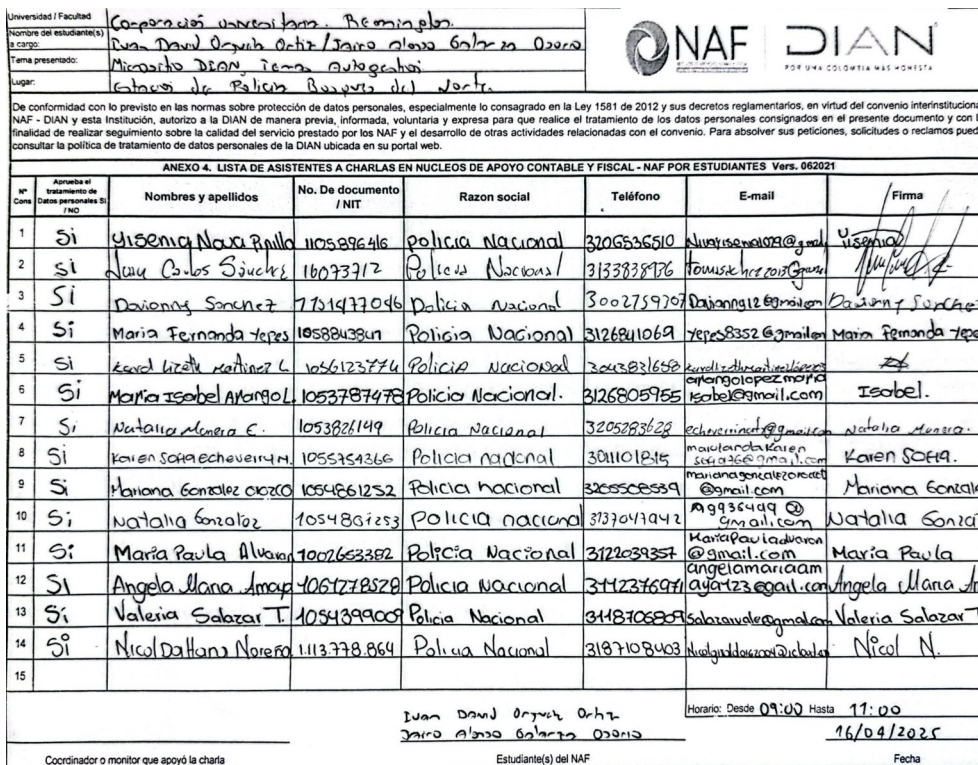 Universidad / Facultad
Corporación Universitaria. Remington.
Nombre del estudiante(s) a cargo:
Ivan David Ortiz / Jairo Alonso Galarza Osorio
Tema presentado:
Micrositio DIAN, Autogestion
Lugar:
de Policia Bosques del Norte.
NAF DIAN
POR UNA COLOMBIA MÁS HONESTA
De conformidad con lo previsto en las normas sobre protección de datos personales, especialmente lo consagrado en la Ley 1581 de 2012 y sus decretos reglamentarios, en virtud del convenio
NAF - DIAN y esta Institución, autorizo a la DIAN de manera previa, informada, voluntaria y expresa para que realice el tratamiento de los datos personales consignados en el presente documento y con
finalidad de realizar seguimiento sobre la calidad del servicio prestado por los NAF y el desarrollo de otras actividades relacionadas con el convenio. Para absolver sus peticiones, solicitudes o reclamos
consultar la política de tratamiento de datos personales de la DIAN ubicada en su portal web.
ANEXO 4. LISTA DE ASISTENTES A CHARLAS EN NUCLEOS DE APOYO CONTABLE Y FISCAL - NAF POR ESTUDIANTES Vers. 062021
Nº Cons Aprueba el tratamiento de Datos personales SI / NO Nombres y apellidos No. De documento / NIT Razon social Teléfono E-mail Firma
1 Si Yisenia Nova 1105896416 policia Nacional 3206536510 Yisenia
2 si Juan Carlos Sánchez 16073712 Policia Nacional 3133838936
3 Si Daianny Sanchez Policia Nacional 3002759707 Daianny
4 Si Maria Fernanda Yepes Policia Nacional 3126841069 Maria Fernanda
5 Si Karol Lizeth Martinez L 1056123774 Policia Nacional 3043831658
6 Si Maria Isabel Arango L. 1053787478 Policia Nacional. 3126805955 arangolopezmaria isabel@gmail.com Isabel.
7 Si Natalia Monera E. 1053826149 Policia Nacional 3205283628 Natalia Monera.
8 Si Karen Sofia Echeverry M. 1055754366 Policia nacional 3011101815 Karen Sofia.
9 Si Mariana Gonzalez Orozco 1054861252 Policia nacional 3205508539 @gmail.com Mariana
10 Si Natalia Gonzalez 1054861253 policia nacional 3137047942 @gmail.com Natalia
11 Si Maria Paula 1002653382 Policia Nacional 3122039357 @gmail.com Maria Paula
12 SI Angela Maria Amaya Policia Nacional 3112376971 angelamariaam Angela Maria
13 Si Valeria Salazar T. 1054399009 Policia Nacional 3118706809 Valeria Salazar
14 Si Nicol Noreña 1.113.778.864 Policia Nacional 3187108403 Nicol N.
15
Horario: Desde 09:00 Hasta 11:00
Ivan David Ortiz
Jairo Alonso Galarza Osorio
16/04/2025
Coordinador o monitor que apoyó la charla
Estudiante(s) del NAF
Fecha